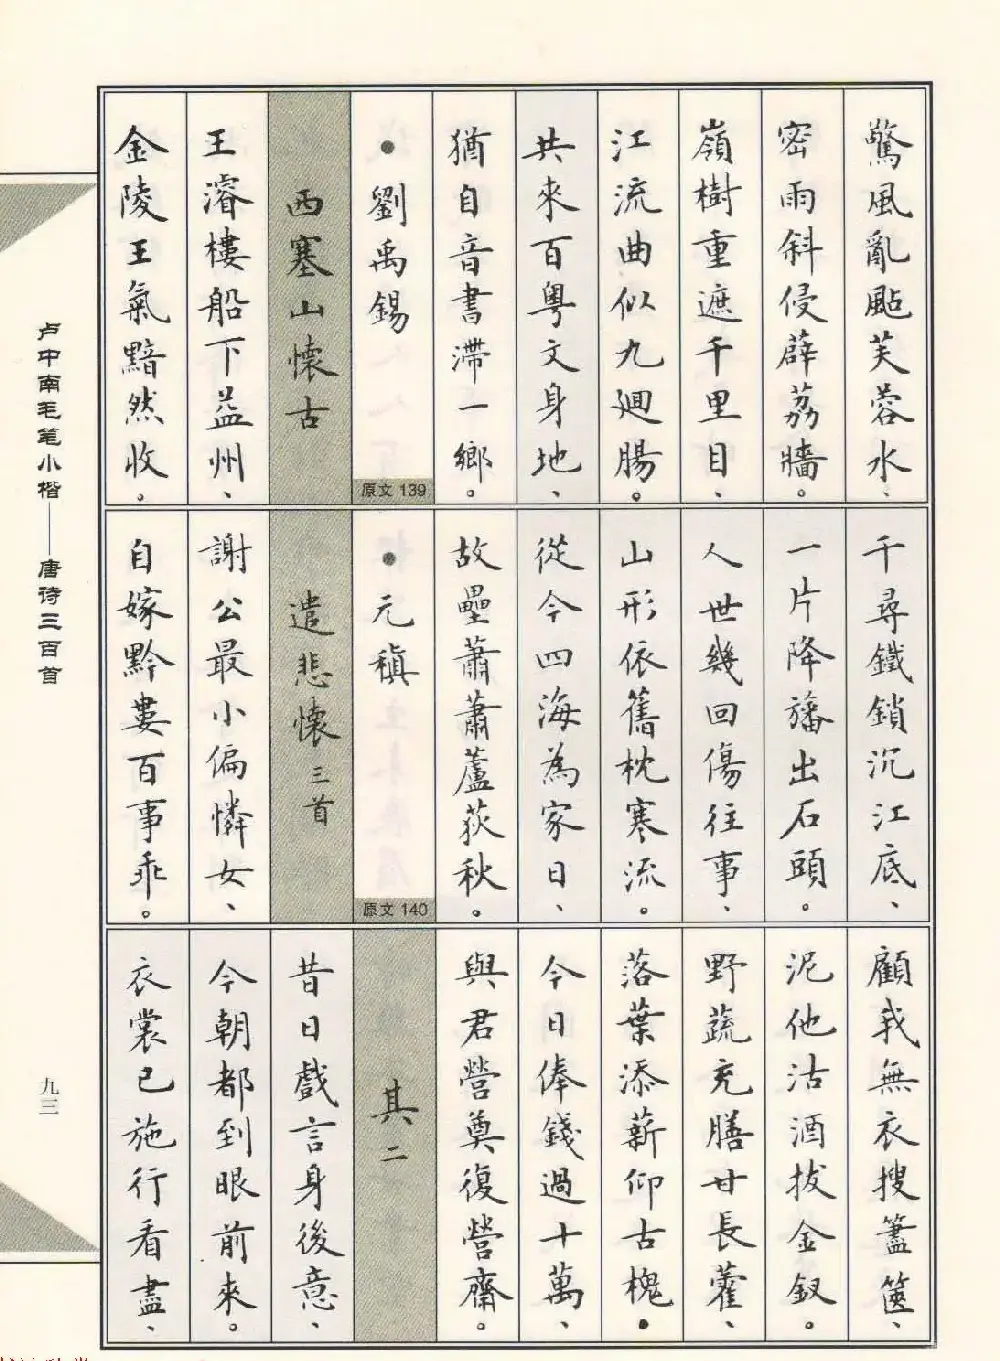 驚風亂颭芙蓉水、
密雨斜侵薜荔牆。
嶺樹重遮千里目、
江流曲似九廻腸。
共來百粵文身地、
猶自音書滯一鄉。
●劉禹錫
原文 139
西塞山懷古
王濬樓船下益州、
金陵王氣黯然收。
千尋鐵鎖沉江底、
一片降旛出石頭。
人世幾回傷往事、
山形依舊枕寒流。
從今四海為家日、
故壘蕭蕭蘆荻秋。
●元稹
原文 140
遣悲懷三首
謝公最小偏憐女、
自嫁黔婁百事乖。
顧我無衣搜藎篋、
泥他沽酒拔金釵。
野蔬充膳甘長藿、
落葉添薪仰古槐●
今日俸錢過十萬、
與君營奠復營齋。
其二
昔日戲言身後意、
今朝都到眼前來。
衣裳已施行看盡、
卢中南毛笔小楷——唐诗三百首
九三